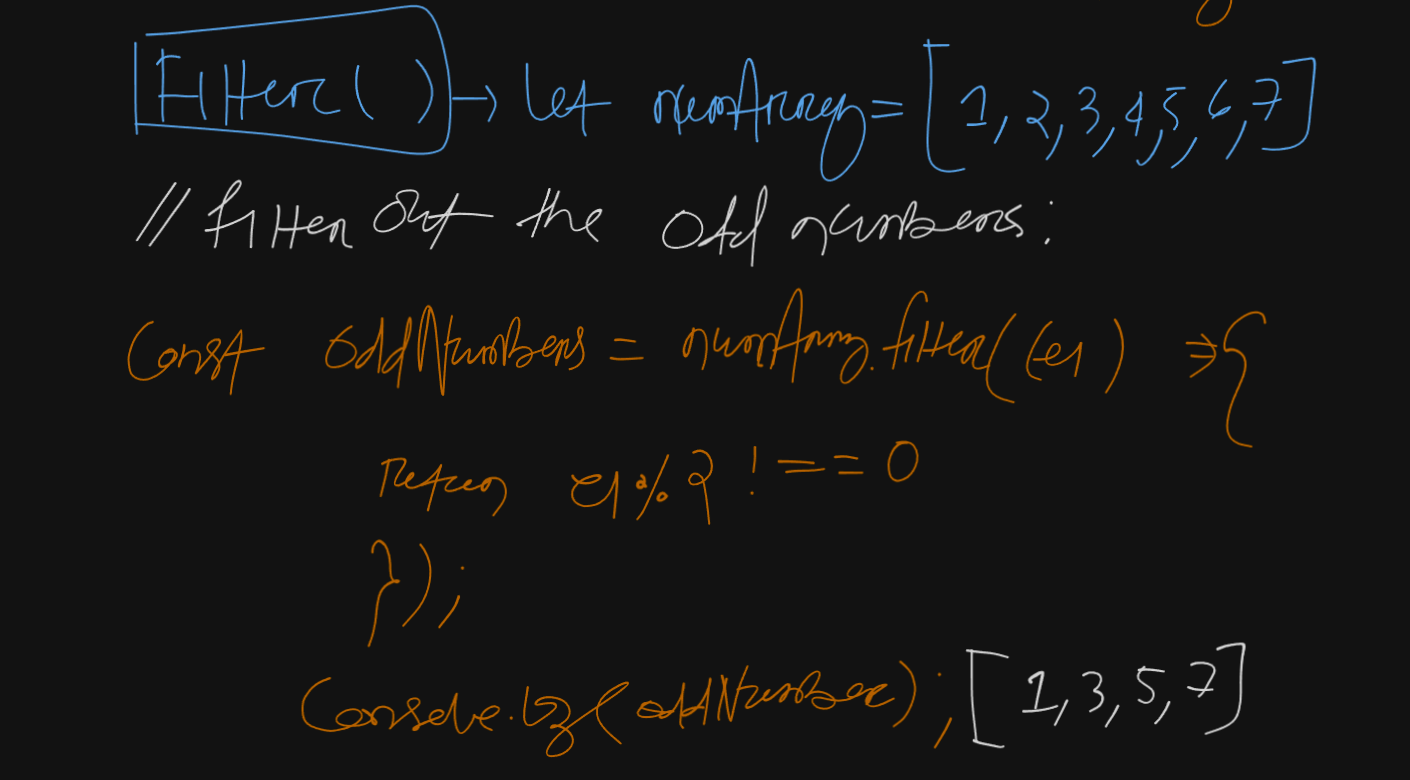 Filter() → let numArray = [1, 2, 3, 4, 5, 6, 7]
// filter out the odd numbers:
const oddNumbers = numArray.filter((el) => {
return el % 2 !== 0
});
console.log(oddNumber); [1, 3, 5, 7]